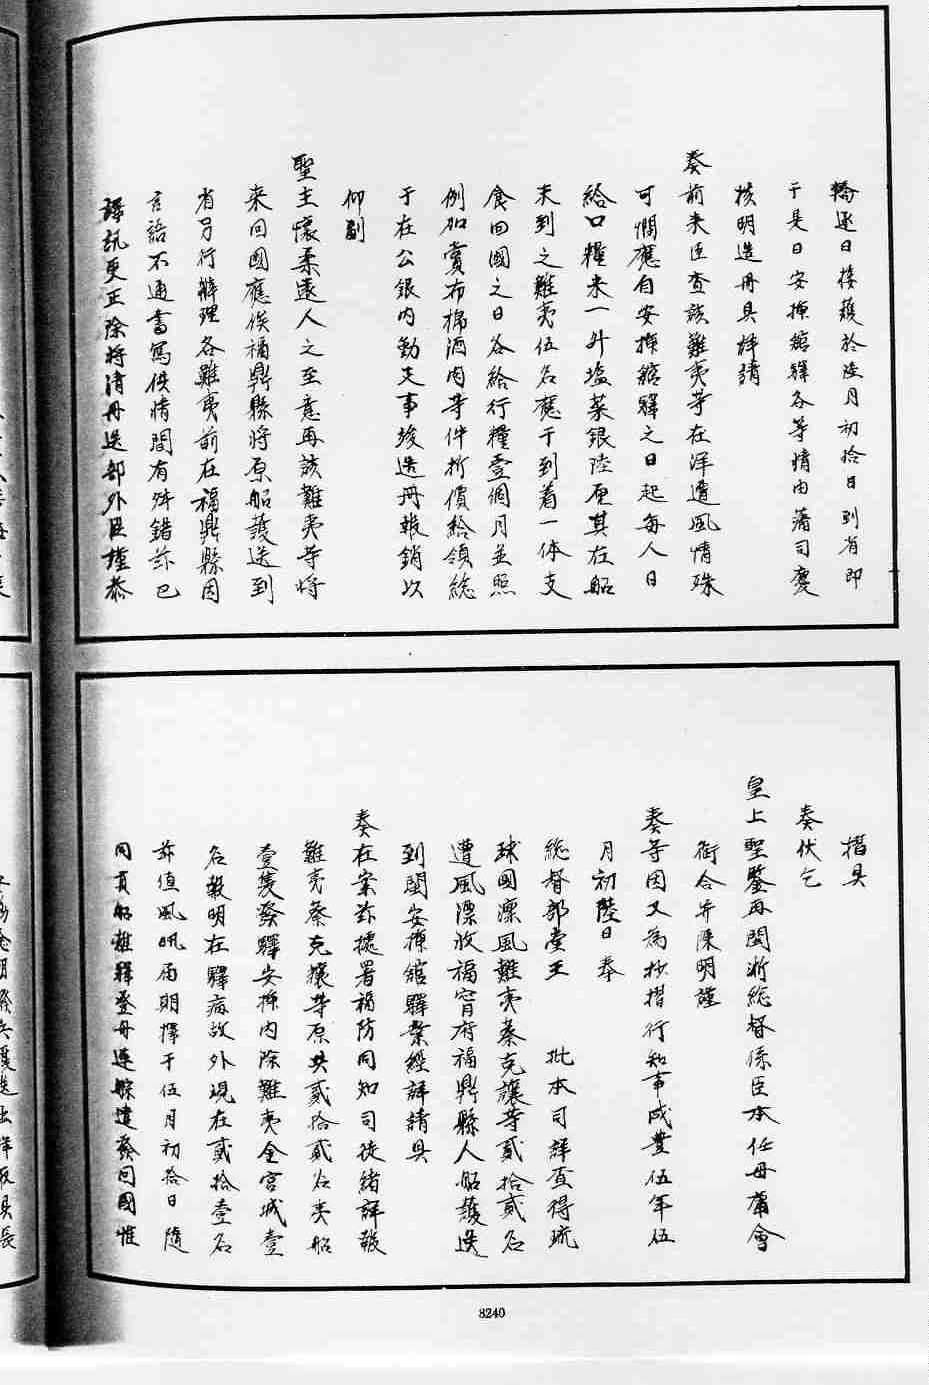 轎逐日接護於陸月初拾日到省即
于是日安揷館驛各等情由藩司慶
核明造冊具詳請
奏前来臣查該難夷等在洋遭風情殊
可憫應自安揷館驛之日起每人日
給口糧米一升塩菜銀陸厘其在船
未到之難夷伍名應于到着一体支
食回國之日各給行糧壹個月並照
例加賞布棉酒肉等件折價給領総
于在公銀内動支事竣造冊報銷以
仰副
聖主懷柔遠人之至意再該難夷等將
来回國應俟福鼎縣將原船護送到
省另行辦理各難夷前在福鼎縣因
言語不通書寫供情間有舛錯茲已
譯訊更正除將清冊送部外臣謹恭
摺具
奏伏乞
皇上聖鑒再閩浙総督係臣本任毋庸會
銜合并陳明謹
奏等因又為抄摺行知事咸豊伍年伍
月初陸日奉
総督部堂王 批本司詳查得琉
球國漂風難夷蔡克讓等貳拾貳名
遭風漂收福寧府福鼎縣人船護送
到閩安揷館驛業經詳請具
奏在案茲據署福防同知司徒緒詳報
難夷蔡克讓等原共貳拾貳名夷船
壹隻發驛安揷内除難夷金宮城壹
名報明在驛病故外現在貳拾壹名
茲值風帆屆期擇于伍月初拾日隨
同貢船離驛登舟連䑸遣發回國惟
8240